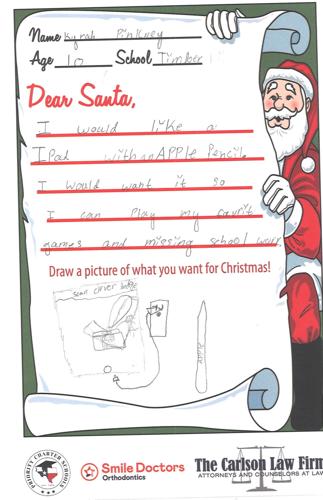 Name Kyrah Pinkney
Age 10 School Timber
Dear Santa,
I would like a
IPad with an APPle Pencil.
I would want it so
I can Play my favrit
games and missing school work.
Draw a picture of what you want for Christmas!
PRIORITY CHARTER SCHOOLS
Smile Doctors
Orthodontics
The Carlson Law Firm
ATTORNEYS AND COUNSELORS AT LAW